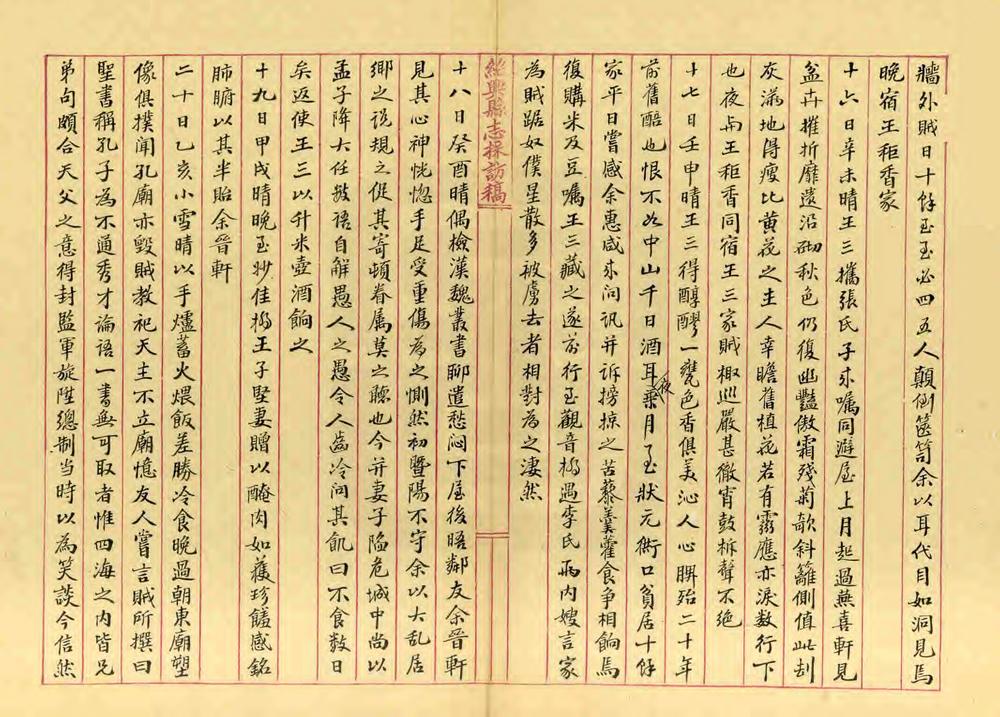 牆外賊日十餘至至必四五人顛倒篋笥余以耳代目如洞見焉
晚宿王秬香家
十六日辛未晴王三攜張氏子來囑同避屋上月起過蕪喜軒見
盆卉摧折靡遺沿砌秋色仍復幽豔傲霜殘菊欹斜籬側值此刦
灰滿地得瘦比黃花之主人幸瞻舊植花若有靈應亦淚数行下
也夜与王秬香同宿王三家賊椒巡嚴甚徹宵鼓柝聲不絕
十七日壬申晴王三得醇醪一甕色香俱美沁人心脾殆二十年
前舊醅也恨不如中山千日酒耳夜乗月了至狀元衖口貧居十餘
家平日嘗感余惠咸來问訊并诉搒掠之苦藜羹藿食争相餉焉
復購米及豆囑王三藏之遂前行至觀音橋遇李氏兩内嫂言家
為賊踞奴僕星散多被虜去者相對為之淒然
紹興縣志採訪稿
十八日癸酉晴偶檢漢魏叢書聊遣愁悶下屋後晤鄰友余晉軒
見其心神恍惚手足受重傷為之惻然初暨陽不守余以大乱居
鄉之说規之促其寄頓眷属莫之聽也今并妻子陷危城中尚以
孟子降大任数语自解愚人之愚令人齒冷问其飢曰不食数日
矣返使王三以升米壺酒餉之
十九日甲戌晴晚至妙佳橋王子堅妻贈以醃肉如獲珍饈感銘
肺腑以其半貽余晉軒
二十日乙亥小雪晴以手爐蓄火煨飯差勝冷食晚過朝東廟塑
像俱撲聞孔廟亦毀賊教祀天主不立廟憶友人嘗言賊所撰曰
聖書稱孔子為不通秀才論语一書無可取者惟四海之内皆兄
弟句頗合天父之意得封監軍旋陞總制当時以為笑談今信然